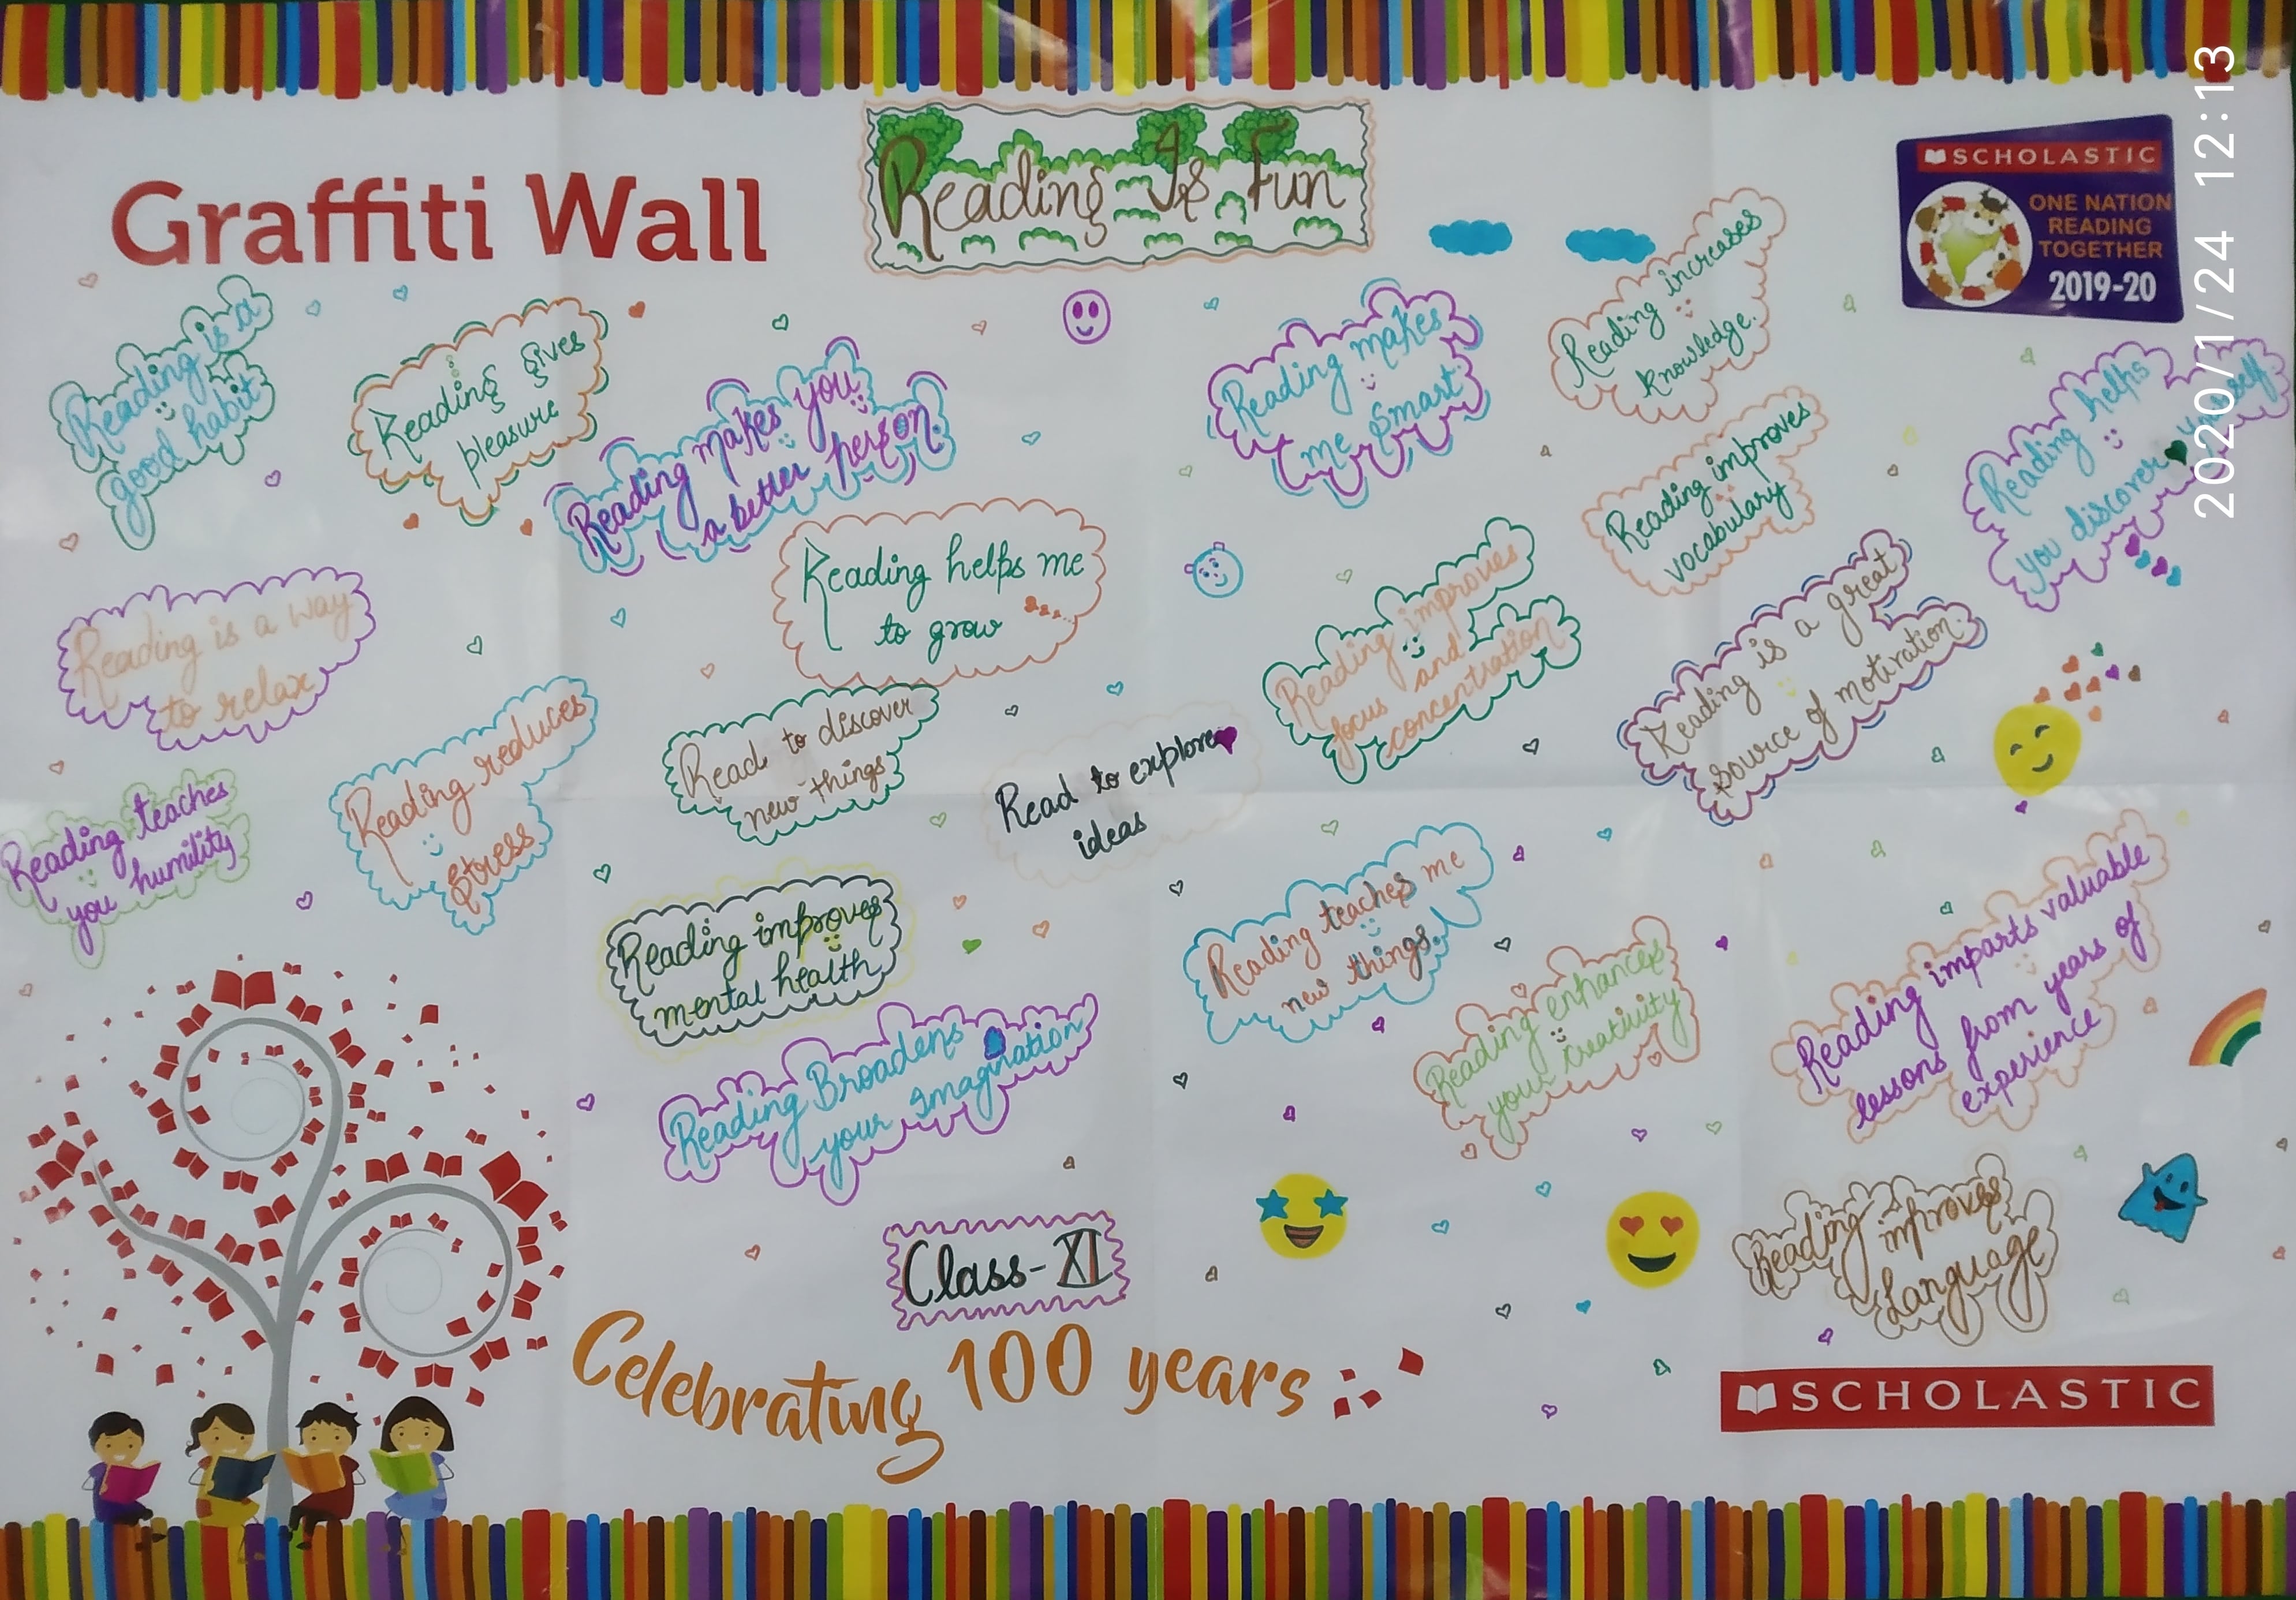 Graffiti Wall
Reading Is Fun
SCHOLASTIC
ONE NATION
READING
TOGETHER
2019-20
2020/1/24 12:13
Reading is a
good habit
Reading gives
pleasure
Reading makes you
a better person.
Reading makes
me smart
Reading increases
knowledge.
Reading improves
vocabulary
Reading helps
you discover yourself.
Reading is a way
to relax
Reading helps me
to grow
Reading improves
focus and
concentration
Reading is a great
source of motivation.
Reading teaches
you humility
Reading reduces
stress
Read to discover
new things
Read to explore
ideas
Reading improves
mental health
Reading teaches me
new things.
Reading enhances
your creativity
Reading imparts valuable
lessons from years of
experience
Reading Broadens
your imagination
Reading improves
Language
Class-XI
Celebrating 100 years
SCHOLASTIC